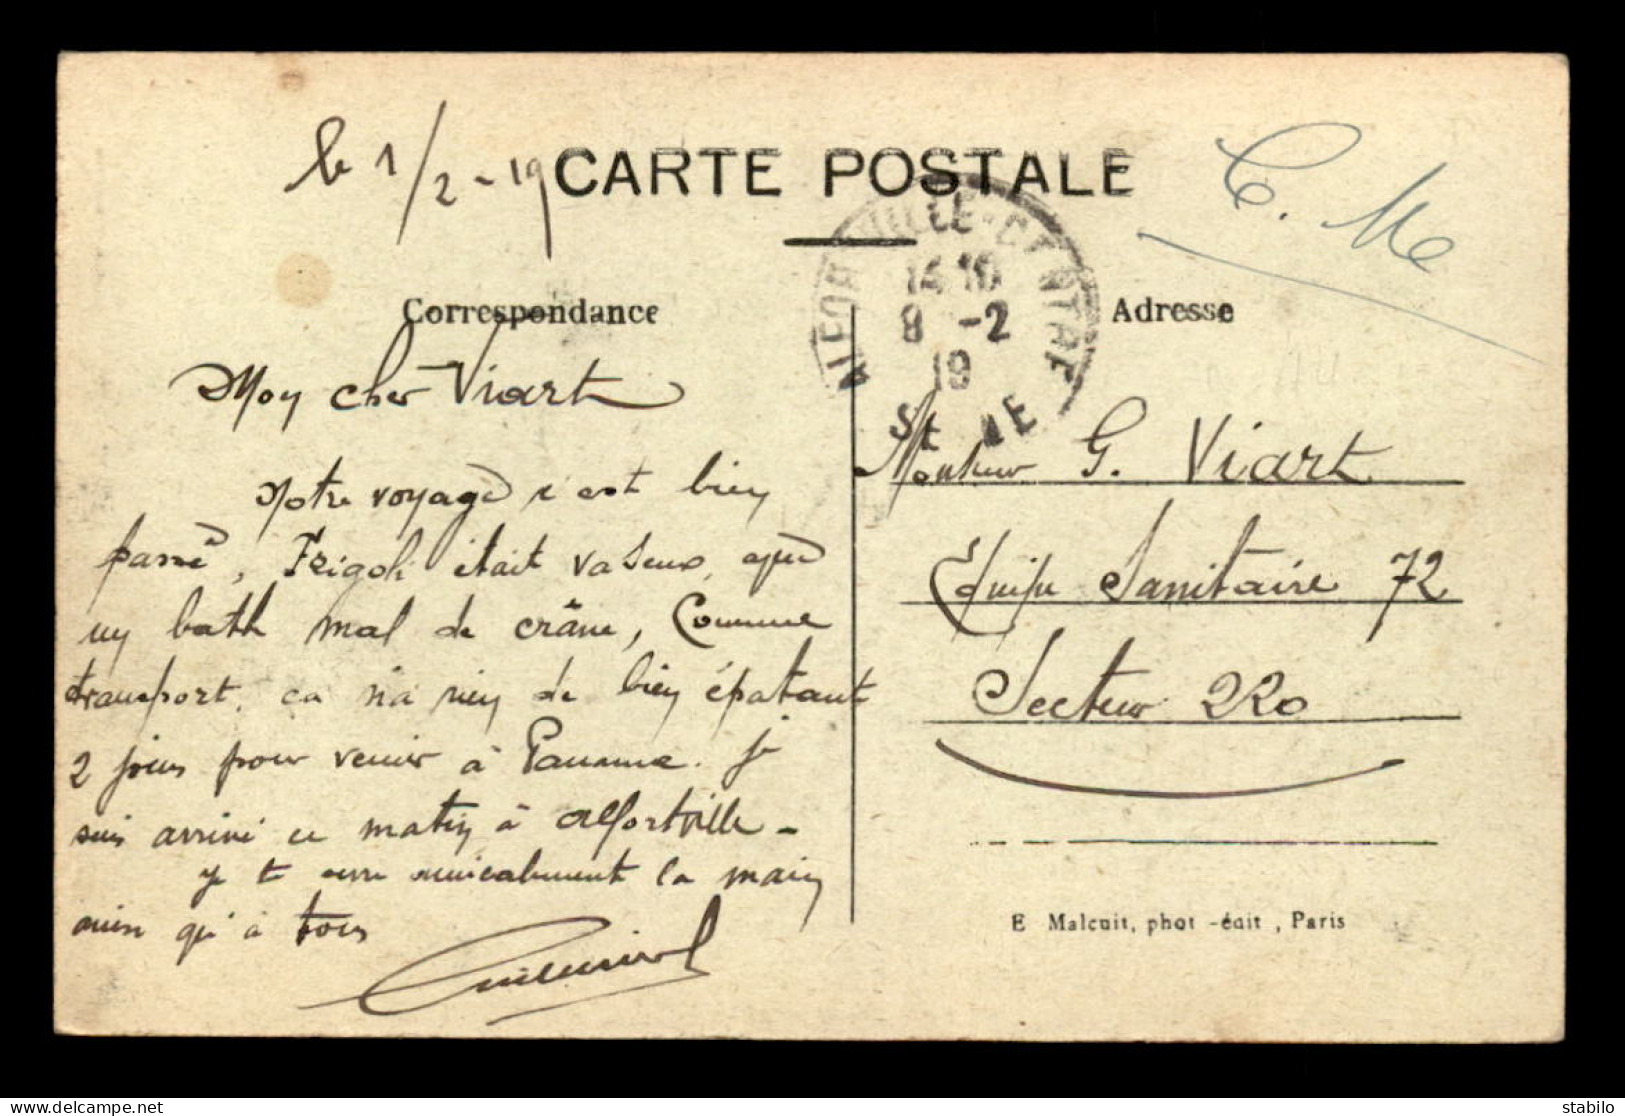 le 1/2-19
CARTE POSTALE
C. Me
ALFORTVILLE-CENTRAL
14 10
8 -2
19
SEINE
Correspondance
Adresse
Mon cher Viart
Notre voyage s'est bien
passé, Frigoli était vaseux, après
un bath mal de crâne, Comme
transport, ca n'a rien de bien épatant
2 jours pour venir à Paname. je
suis arrivé ce matin à Alfortville -
je te serre amicalement la main
ainsi qu'à tous
Monsieur G. Viart
Equipe Sanitaire 72
Secteur 220
E Malcuit, phot -édit, Paris
stabilo